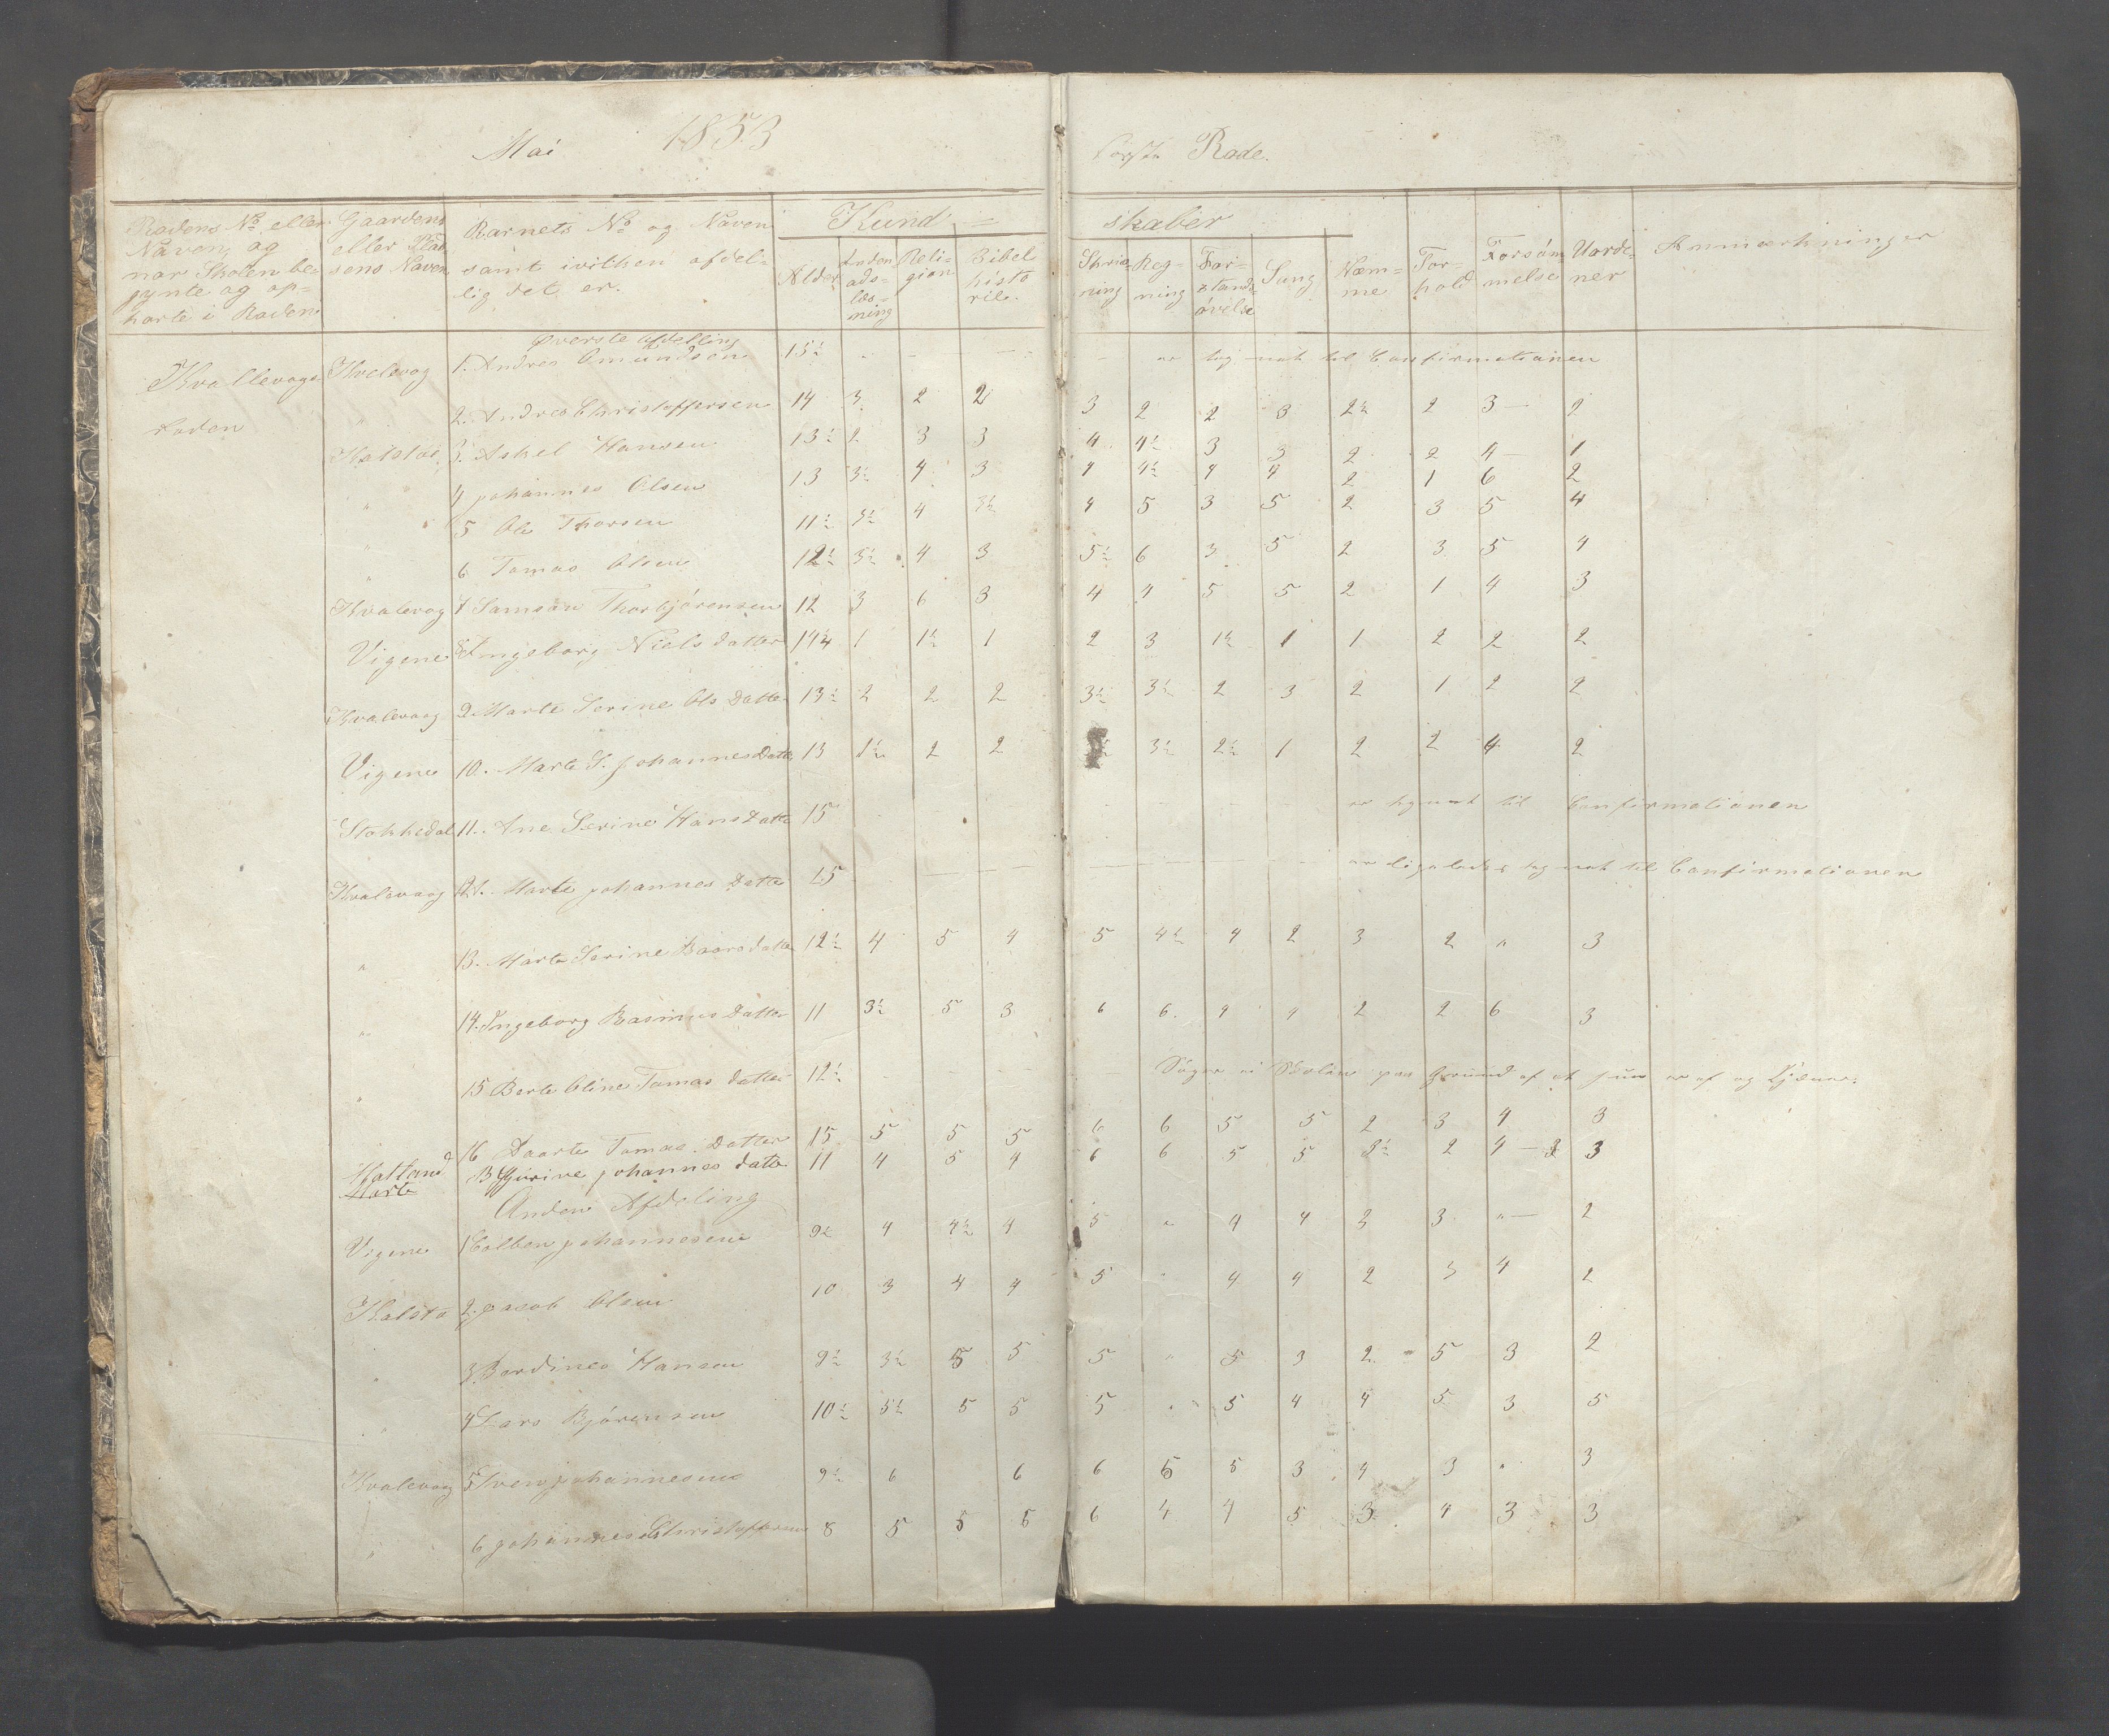 Mai 1853
Første Rode.
Rodens No eller Gaardens Barnets No og Naven Kund= skaber
Naven og eller Plad samt i vilken afdel=
naar Skolen be= sens Naven lig det er.
gynte og op=
hørte i Roden
Alder Inden ads= læs= ning Reli= gion Bibel histo rie. Skriv= ning Reg= ning For= stands øvelse Sang Næm= me For= hold Forsøm melse Uorde= ner Anmærkninger
Øverste afdelling
Kvallevags Kvalevag 1. Andres Omundsen 15½ - - - - er tag nat til Confirmationen
roden " 2. Andres Christoffersen 14 3 2 2 3 2 2 3 2½ 2 3 - 2
Kalstø 3. Askel Hansen 13½ 2 3 3 4 4½ 3 3 2 2 4 - 1
" 4 Johannes Olsen 13 3½ 4 3 4 4½ 4 4 2 1 6 2
" 5 Ole Thorsen 11½ 3½ 4 3½ 4 5 3 5 2 3 5 4
" 6 Tomas Olsen 12½ 3½ 4 3 5½ 6 3 5 2 3 5 4
Kvalevag 7 Samson Thorbjørensen 12 3 6 3 4 4 5 5 2 1 4 3
Vigene 8 Ingeborg Nielsdatter 14¼ 1 1½ 1 2 3 1½ 1 1 2 2 2
Kvalevaag 9. Marte Serine Olsdatter 13½ 2 2 2 3½ 3½ 2 3 2 1 2 2
Vigene 10. Marte S. Johannesdatte 13 1½ 2 2 3½ 2½ 1 2 2 4 2
Stokkedal 11. Ane Serine Hansdatte 15 - - er tag nat til Confirmationen
Kvalevaag 12. Marte Johannes Datte 15 - - er ligeledes tag nat til Confirmationen
" 13. Marte Serine Baarsdatte 12½ 4 5 4 5 4½ 4 2 3 2 " 3
" 14. Ingeborg Rasmusdatte 11 3½ 5 3 6 6 4 4 2 2 6 3
" 15 Berte Oline Tomasdatter 12½ - - Søger ei Skolen paa Grund af at hun er af og tjæner.
16 Daarte Tomas Datter 15 5 5 5 6 6 5 5 2 3 4 3
Hatland Gurine Johannes datte 11 4 5 4 6 6 5 5 3½ 2 4 - 3
Anden Afdeling
Vigene 1 Colben Johannesen 9½ 4 4½ 4 5 " 4 4 3 3 " - 2
Kalstø 2 Jacob Olsen 10 3 4 4 5 " 4 4 2 3 4 2
" 3 Berdines Hansen 9½ 3½ 5 5 5 " 5 3 2 5 3 2
" 4 Lars Bjørensen 10½ 5½ 5 5 5 " 5 4 4 5 3 5
Kvalevaag 5 Sven Johannesen 9½ 6 6 6 5 5 3 4 3 " 3
" 6 Johannes Christoffersen 8 5 5 5 6 4 4 5 3 4 3 3